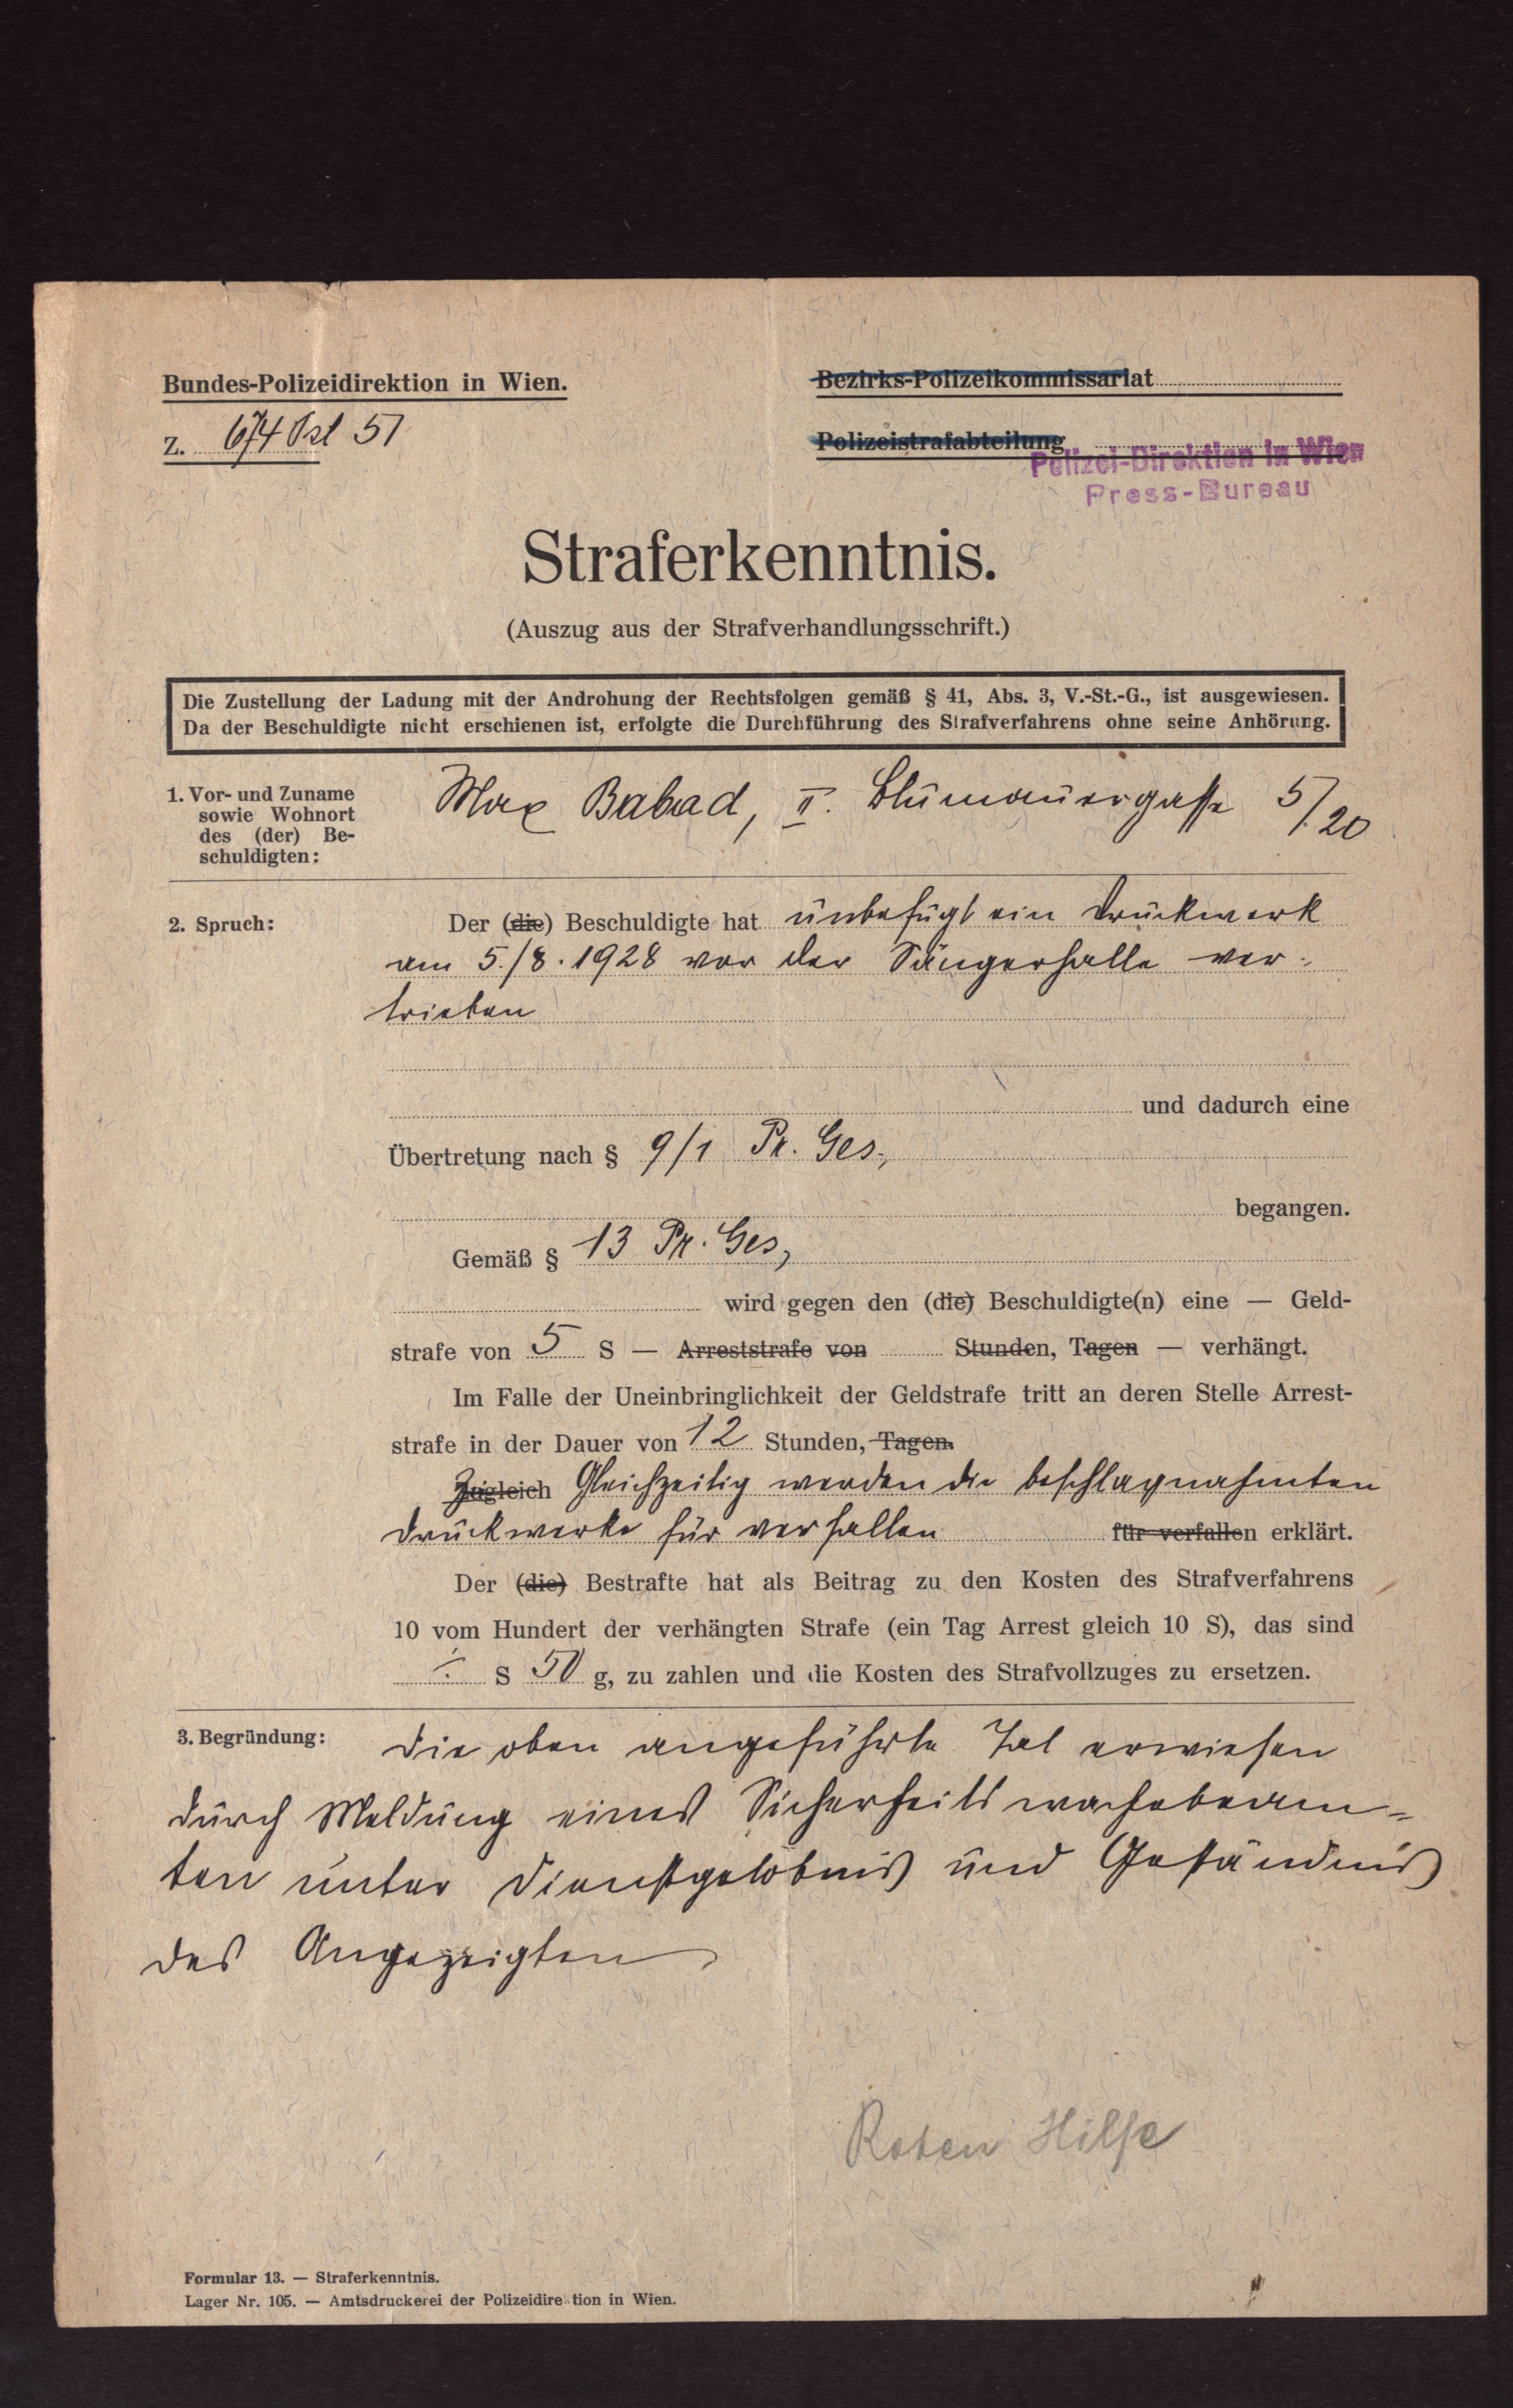 Bundes-Polizeidirektion in Wien.
Z. 674 51
Bezirks-Polizeikommissariat
Polizeistrafabteilung
Polizei-Direktion in Wien
Press-Bureau
Straferkenntnis.
(Auszug aus der Strafverhandlungsschrift.)
Die Zustellung der Ladung mit der Androhung der Rechtsfolgen gemäß § 41, Abs. 3, V.-St.-G., ist ausgewiesen.
Da der Beschuldigte nicht erschienen ist, erfolgte die Durchführung des Strafverfahrens ohne seine Anhörung.
1. Vor- und Zuname
sowie Wohnort
des (der) Be-
schuldigten:
Max Babad, II. Blumauergasse 5/20
2. Spruch:
Der (die) Beschuldigte hat unbefugt ein Druckwerk
am 5./8. 1928 vor der Sängerhalle ver-
trieben
und dadurch eine
Übertretung nach § 9/1 Pr. Ges.,
begangen.
Gemäß § 13 Pr. Ges,
wird gegen den (die) Beschuldigte(n) eine — Geld-
strafe von 5 S — Arreststrafe von Stunden, Tagen — verhängt.
Im Falle der Uneinbringlichkeit der Geldstrafe tritt an deren Stelle Arrest-
strafe in der Dauer von 12 Stunden, Tagen.
Zugleich Gleichzeitig werden die beschlagnahmten
Druckwerke für verfallen für verfallen erklärt.
Der (die) Bestrafte hat als Beitrag zu den Kosten des Strafverfahrens
10 vom Hundert der verhängten Strafe (ein Tag Arrest gleich 10 S), das sind
÷ S 50 g, zu zahlen und die Kosten des Strafvollzuges zu ersetzen.
3. Begründung: Die oben angeführte Tat erwiesen
durch Meldung eines Sicherheitswachebeam-
ten unter Dienstgelöbnis und Geständnis
des Angezeigten
Roten Hilfe
Formular 13. — Straferkenntnis.
Lager Nr. 105. — Amtsdruckerei der Polizeidirektion in Wien.